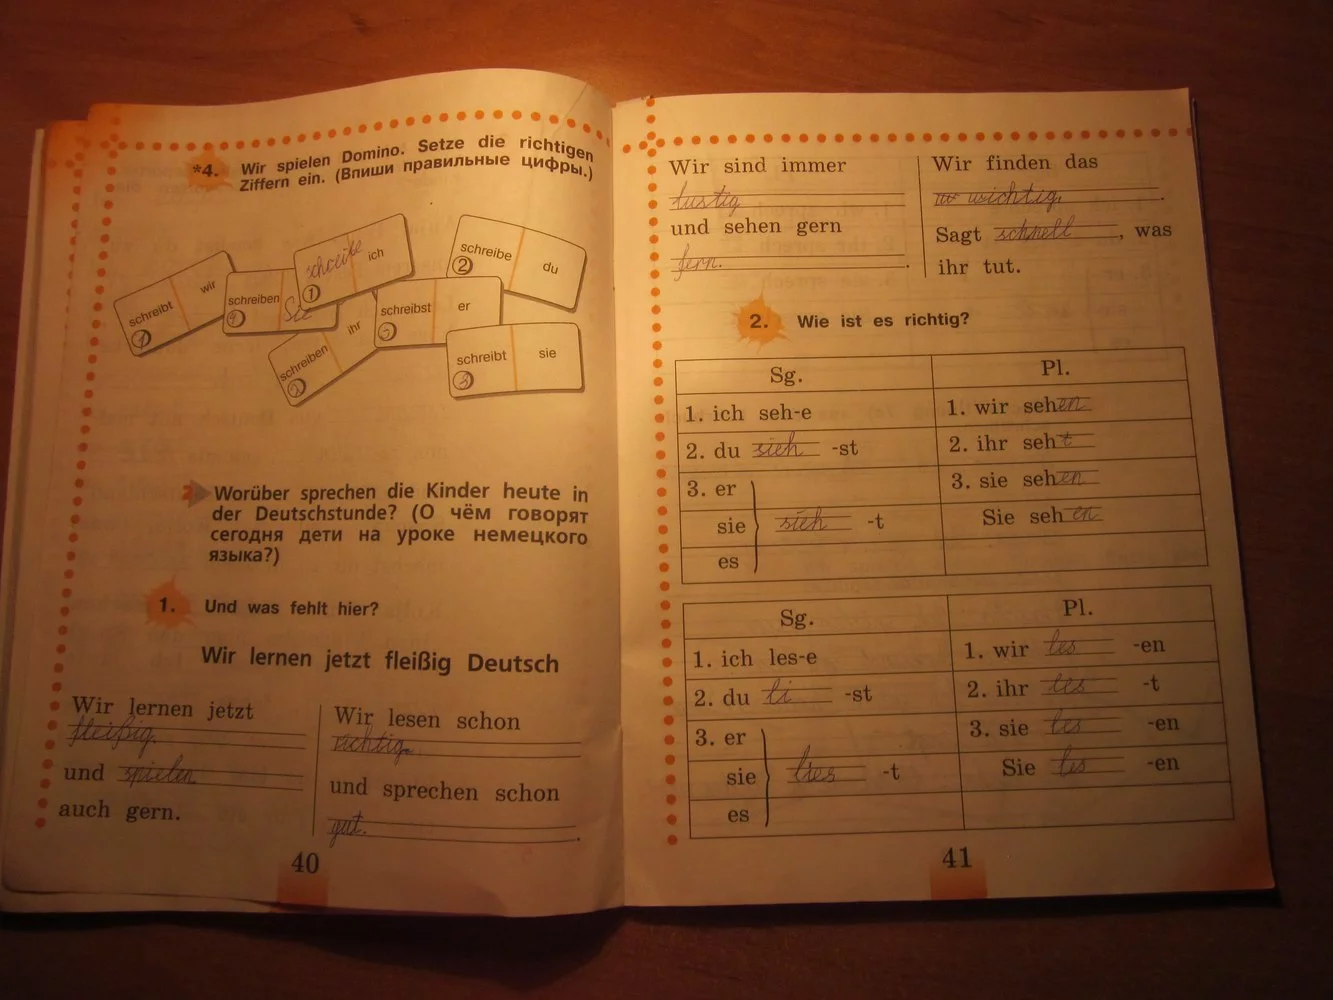 *4. Wir spielen Domino. Setze die richtigen
Ziffern ein. (Впиши правильные цифры.)
schreibt wir
schreiben Sie
schreibe ich
1
schreibe du
2
schreiben ihr
schreibst er
schreibt sie
3
2 Worüber sprechen die Kinder heute in
der Deutschstunde? (О чём говорят
сегодня дети на уроке немецкого
языка?)
1. Und was fehlt hier?
Wir lernen jetzt fleißig Deutsch
Wir lernen jetzt
fleißig.
und spielen
auch gern.
Wir lesen schon
richtig
und sprechen schon
gut.
40
Wir sind immer
lustig
und sehen gern
fern.
Wir finden das
wichtig.
Sagt schnell, was
ihr tut.
2. Wie ist es richtig?
Sg. Pl.
1. ich seh-e 1. wir sehen
2. du sieh -st 2. ihr seht
3. er 3. sie sehen
sie sieh -t Sie sehen
es
Sg. Pl.
1. ich les-e 1. wir les -en
2. du li -st 2. ihr les -t
3. er 3. sie les -en
sie lies -t Sie les -en
es
41